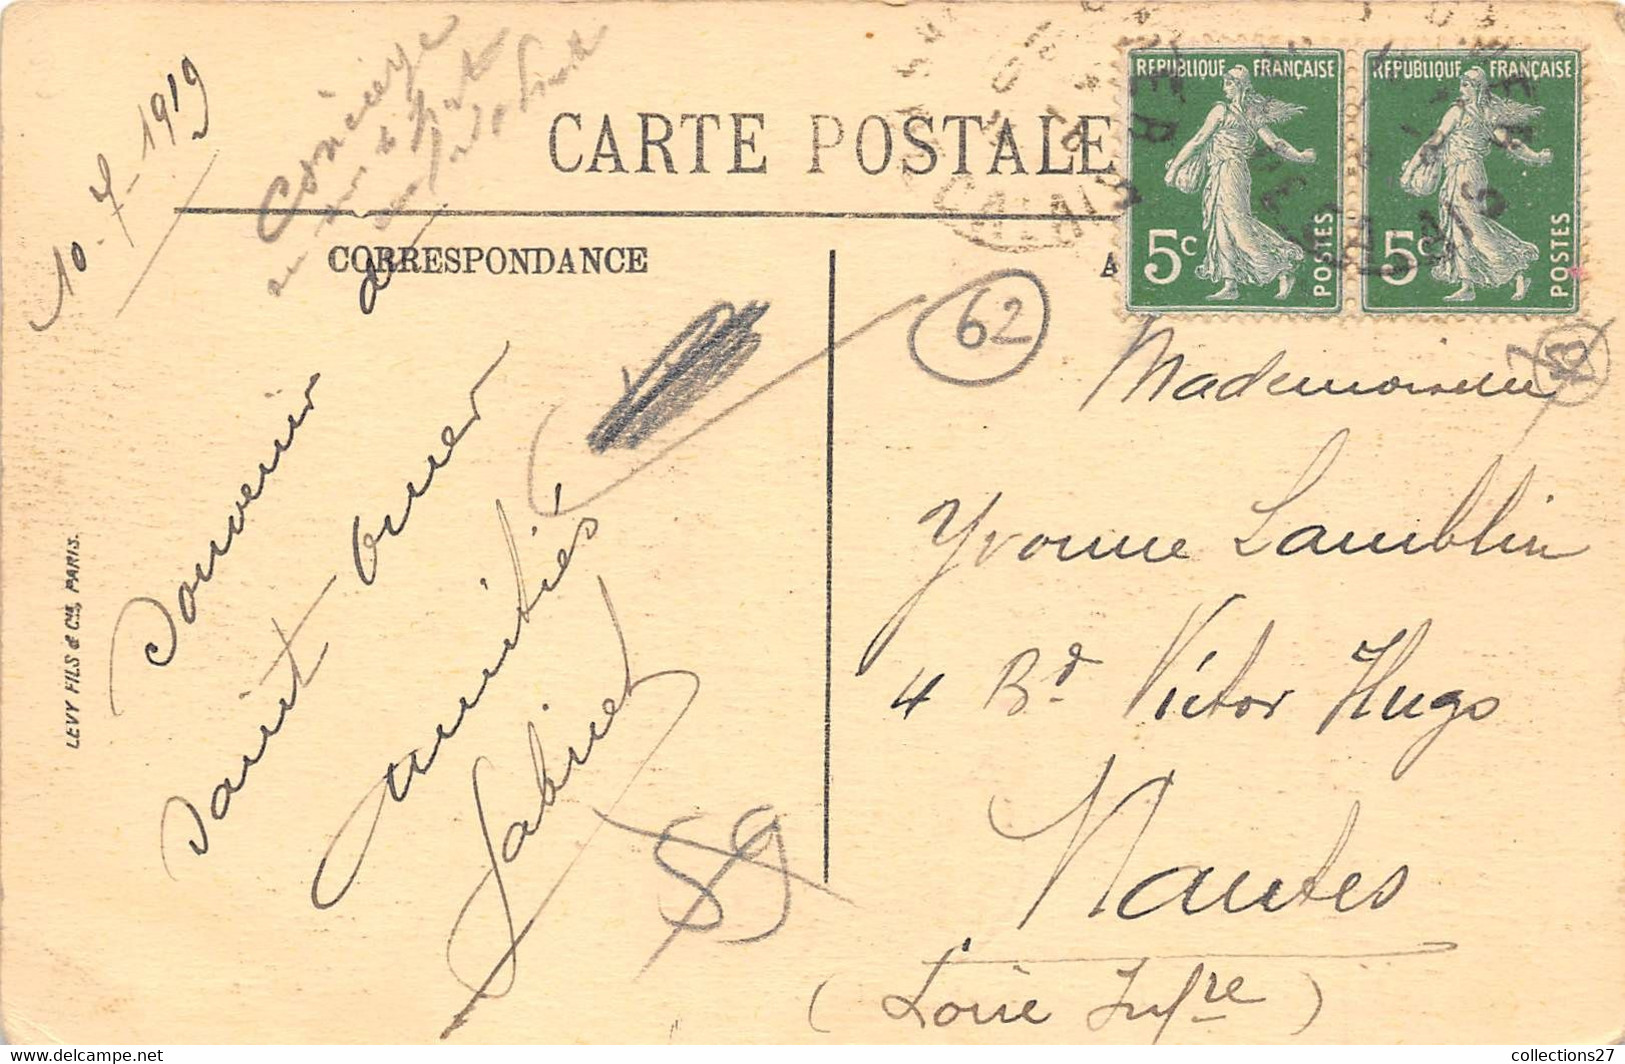 10-7-1919
CARTE POSTALE
CORRESPONDANCE
Souvenir de
Saint-Omer
Amitiés
Gabriel
59
62
LEVY FILS & Cie, PARIS.
RÉPUBLIQUE FRANÇAISE
5c
POSTES
RÉPUBLIQUE FRANÇAISE
5c
POSTES
CALAIS
Mademoiselle
Yvonne Lamblin
4 Bd. Victor Hugo
Nantes
(Loire Infre)
collections27